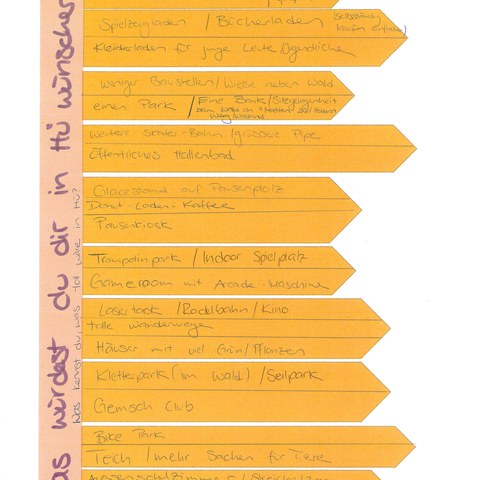 Spielzeugladen / Bücherladen
Kleiderladen für junge Leute/Jugendliche
weniger Baustellen/Wiese neben Wald
einen Park / Eine Bank/Sitzgelegenheit
weitere Skater-Bahn/grössere Pipe
Öffentliches Hallenbad
Glacestand auf Pausenplatz
Donut-Laden-Kaffee
Pausenkiosk
Trampolinpark / Indoor Spielplatz
Gameroom mit Arcade-Maschine
Lasertack /Rodelbahn/Kino
tolle Wanderwege
Häuser mit viel Grün/Pflanzen
Kletterpark (im Wald) /Seilpark
Gemsch Club
Bike Park
Teich /mehr Sachen für Tiere
as würdest du dir in Hü wünschen
Was kennst du, was toll wäre in Hü?